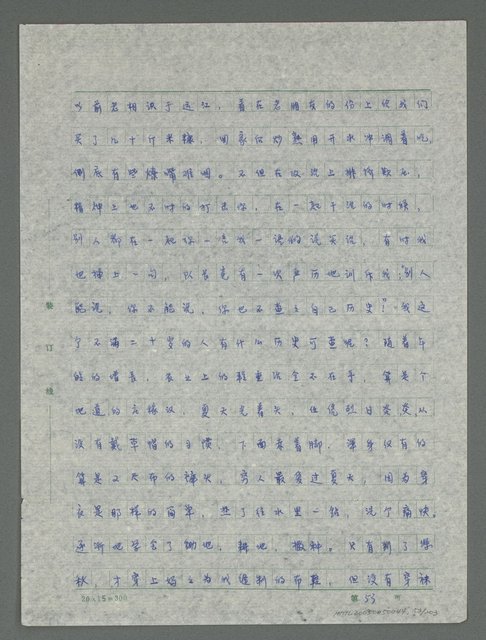 以前老相识于远江，看在老朋友的份上给我们
买了几十斤米糠，回家后炒熟用开水冲调着吃，
倒底有些燥嘴难咽。不但在政治上排挤欺压，
精神上也不时的打击你，在一起干活的时候，
别人都在一起你一言我一语的说笑话，有时我
也插上一句，以长竟有一次严厉地训斥我：别人
能说，你不能说，你也不查查自己历史？我这
个不满二十岁的人有什么历史可查呢？随着年
龄的增长，农业上的轻重活全不在乎，算是个
地道的庄稼汉，夏天光着头，任凭烈日炎炎，从
没有戴草帽的习惯，下面赤着脚，浑身仅有的
算是叉夫布的裤头，穷人最爱过夏天，因为身
衣是那样的简单，热了往水里一钻，洗个痛快。
逐渐地学会了锄地，耕地，撒种。只有到了深
秋，才穿上妈么为我缝制的布鞋，但没有穿袜
装订线
20×15=300
第 53 页